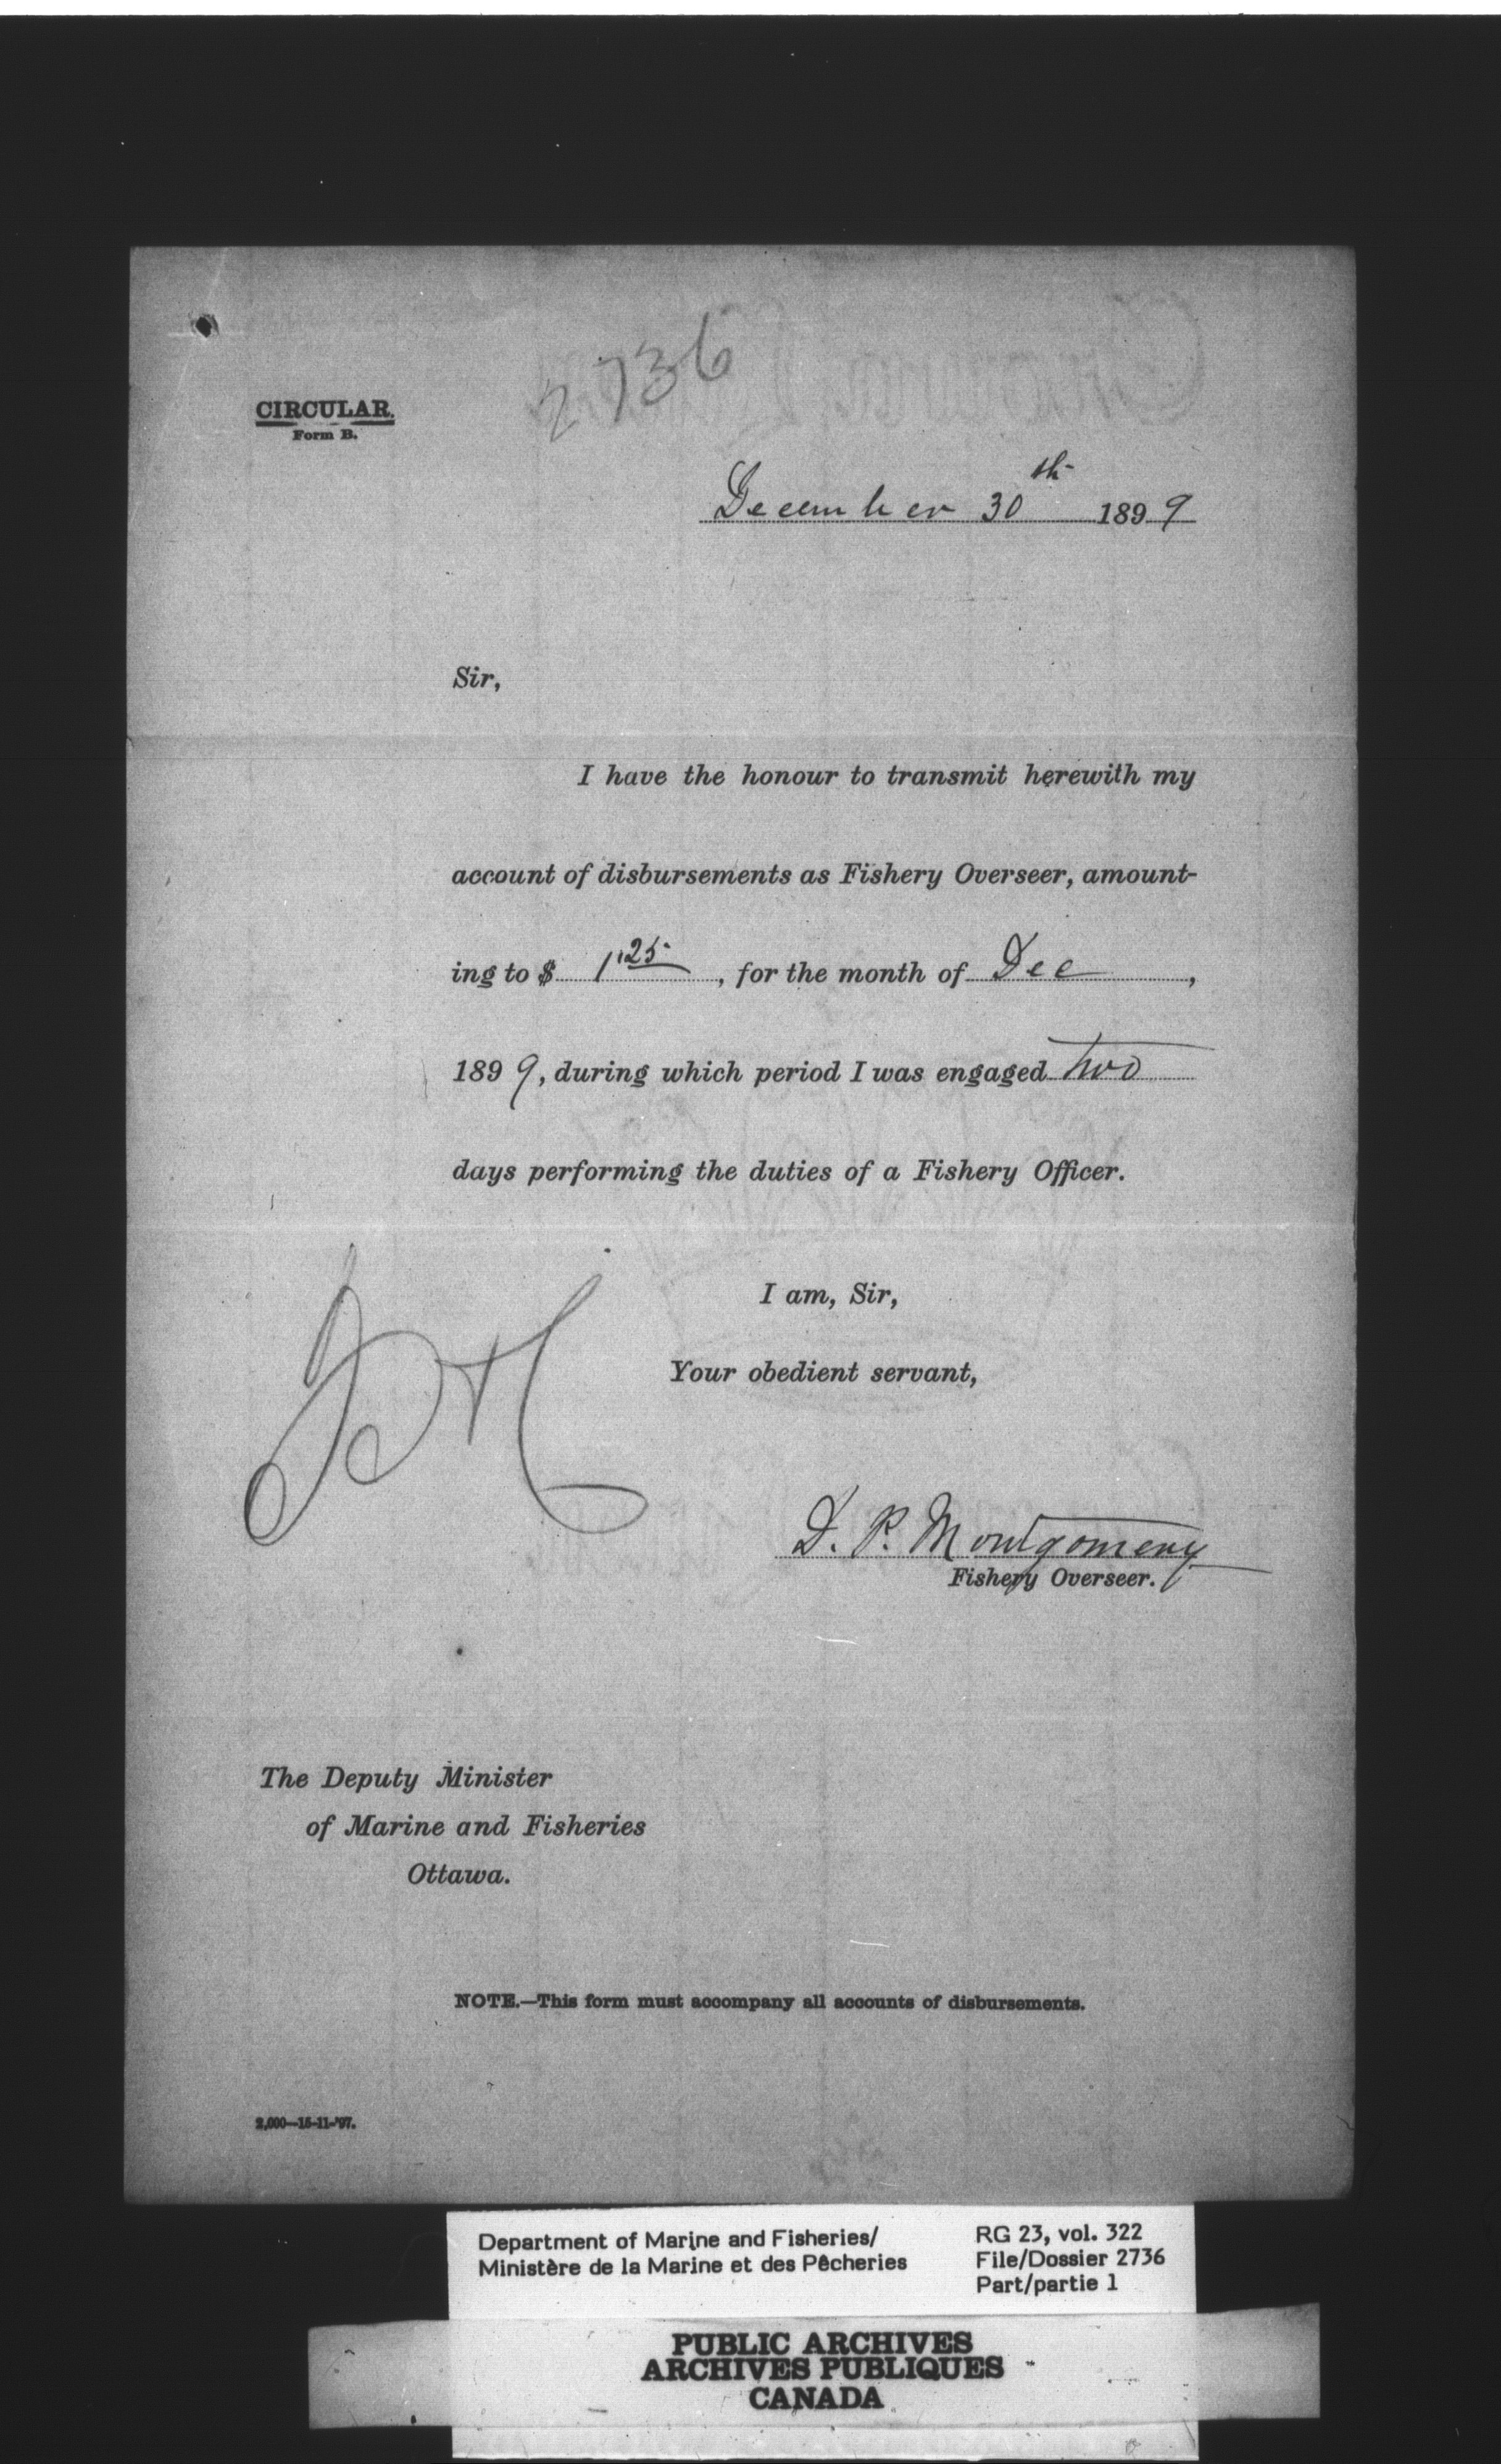 2736
CIRCULAR.
Form B.
December 30th 1899
Sir,
I have the honour to transmit herewith my
account of disbursements as Fishery Overseer, amount-
ing to $ 1.25, for the month of Dec,
1899, during which period I was engaged two
days performing the duties of a Fishery Officer.
I am, Sir,
Your obedient servant,
D. P. Montgomery
Fishery Overseer.
The Deputy Minister
of Marine and Fisheries
Ottawa.
NOTE.—This form must accompany all accounts of disbursements.
2,000—15-11-'97.
Department of Marine and Fisheries/
Ministère de la Marine et des Pêcheries
RG 23, vol. 322
File/Dossier 2736
Part/partie 1
PUBLIC ARCHIVES
ARCHIVES PUBLIQUES
CANADA